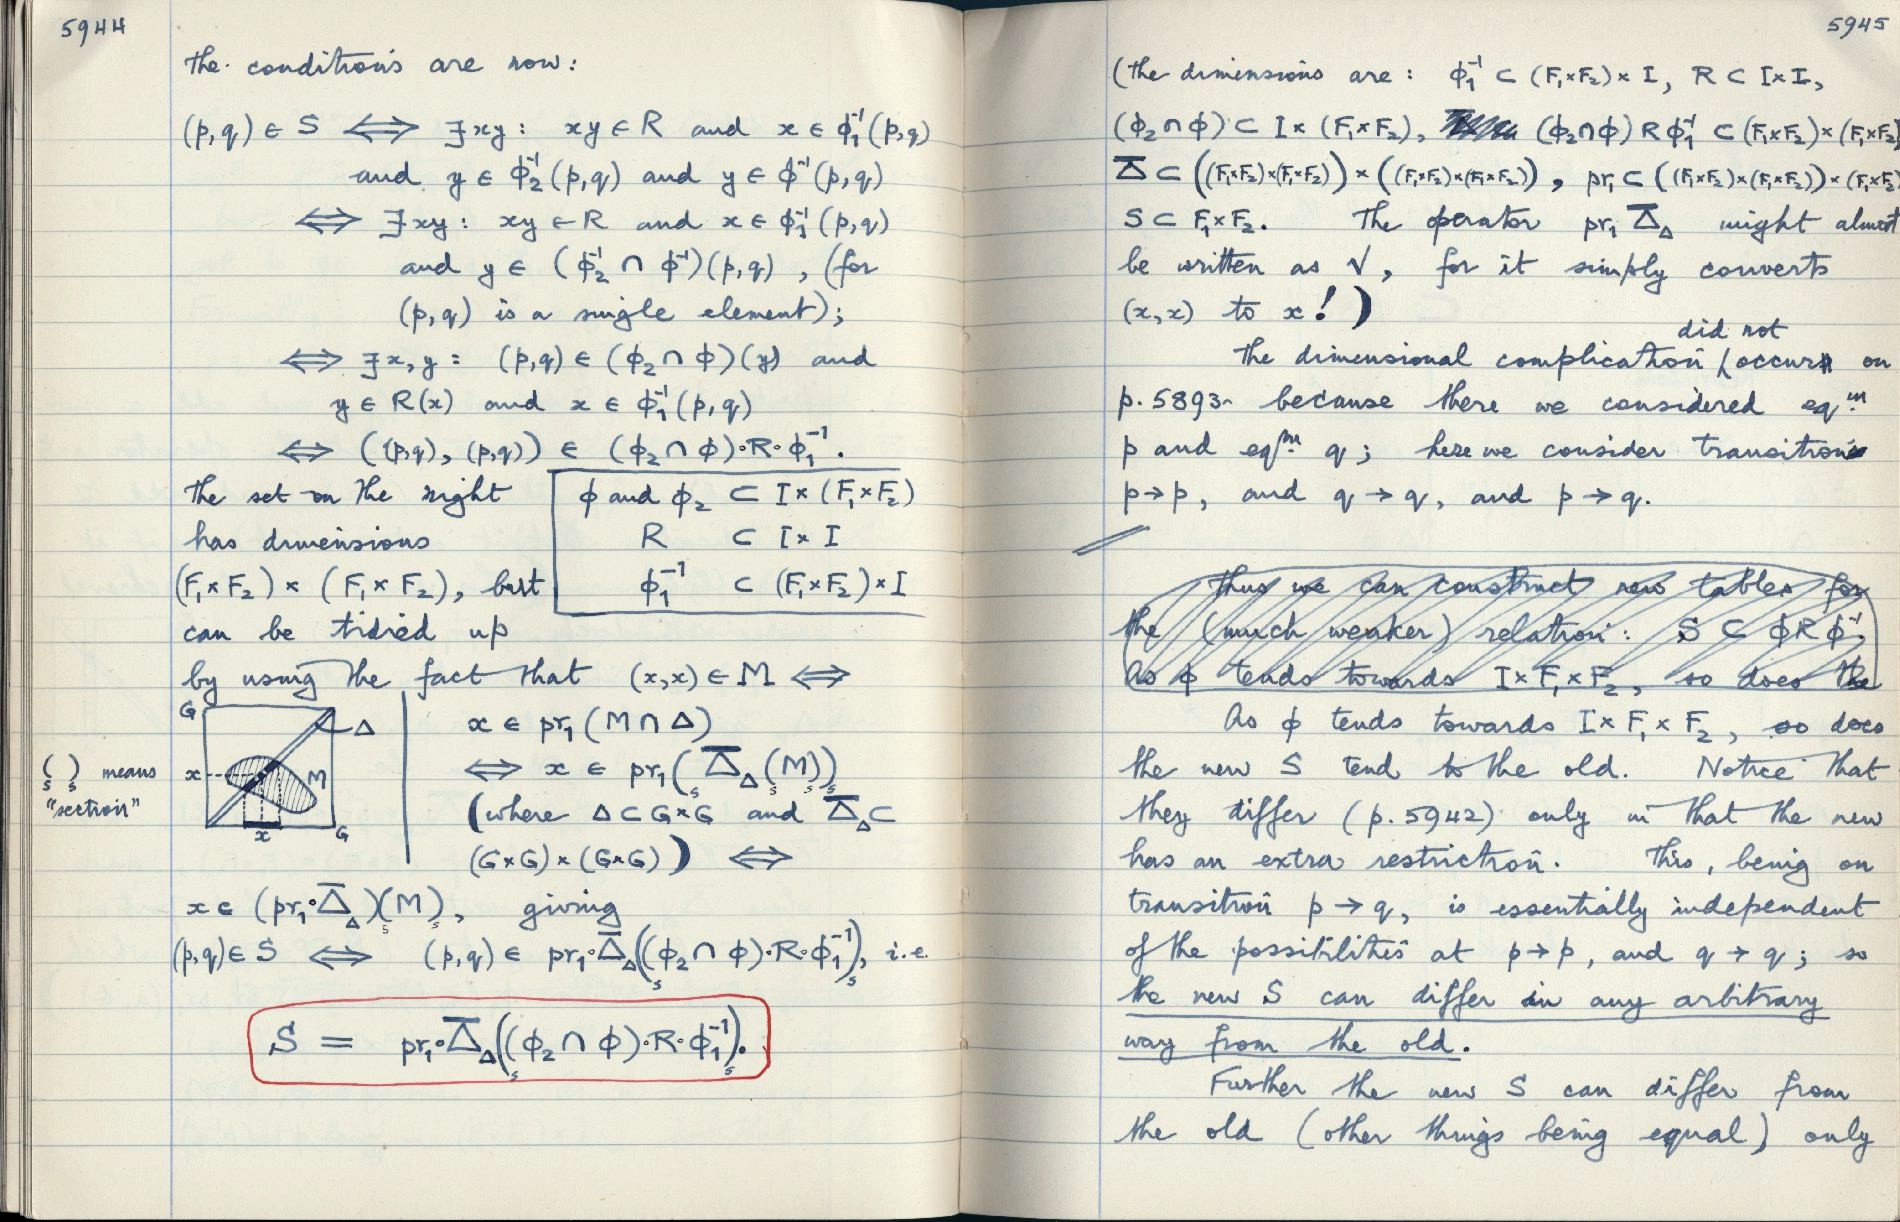 5944
the conditions are now:
(p,q) ∈ S ⟺ ∃xy: xy ∈ R and x ∈ ϕ₁⁻¹(p,q)
and y ∈ ϕ₂⁻¹(p,q) and y ∈ ϕ⁻¹(p,q)
⟺ ∃xy: xy ∈ R and x ∈ ϕ₁⁻¹(p,q)
and y ∈ (ϕ₂⁻¹ ∩ ϕ⁻¹)(p,q), (for
(p,q) is a single element);
⟺ ∃x,y: (p,q) ∈ (ϕ₂ ∩ ϕ)(y) and
y ∈ R(x) and x ∈ ϕ₁⁻¹(p,q)
⟺ ((p,q), (p,q)) ∈ (ϕ₂ ∩ ϕ)·R·ϕ₁⁻¹.
the set on the right
has dimensions
(F₁×F₂) × (F₁×F₂), but
can be tidied up
ϕ and ϕ₂ ⊂ I×(F₁×F₂)
R ⊂ I×I
ϕ₁⁻¹ ⊂ (F₁×F₂)×I
by using the fact that (x,x) ∈ M ⟺
G
Δ
x
M
x
G
( )ₛ means
"section"
x ∈ pr₁(M ∩ Δ)
⟺ x ∈ pr₁(Δ̅_Δ(M)ₛ)ₛ
(where Δ ⊂ G×G and Δ̅_Δ ⊂
(G×G)×(G×G)) ⟺
x ∈ (pr₁·Δ̅_Δ)(M)ₛ, giving
(p,q) ∈ S ⟺ (p,q) ∈ pr₁·Δ̅_Δ((ϕ₂ ∩ ϕ)·R·ϕ₁⁻¹)ₛ, i.e.
S = pr₁·Δ̅_Δ((ϕ₂ ∩ ϕ)·R·ϕ₁⁻¹)ₛ.
5945
(the dimensions are: ϕ₁⁻¹ ⊂ (F₁×F₂)×I, R ⊂ I×I,
(ϕ₂∩ϕ) ⊂ I×(F₁×F₂), (ϕ₂∩ϕ)Rϕ₁⁻¹ ⊂ (F₁×F₂)×(F₁×F₂)
Δ̅ ⊂ ((F₁×F₂)×(F₁×F₂))×((F₁×F₂)×(F₁×F₂)), pr₁ ⊂ ((F₁×F₂)×(F₁×F₂))×(F₁×F₂
S ⊂ F₁×F₂. The operator pr₁Δ̅_Δ might almost
be written as √, for it simply converts
(x,x) to x!)
did not
The dimensional complication /occur on
p.5893 because there we considered eqᵐ
p and eqᵐ q; here we consider transitions
p→p, and q→q, and p→q.
Thus we can construct new tables for
the (much weaker) relation: S ⊂ ϕRϕ⁻¹,
As ϕ tends towards I×F₁×F₂, so does the
As ϕ tends towards I×F₁×F₂, so does
the new S tend to the old. Notice that
they differ (p.5942) only in that the new
has an extra restriction. This, being on
transition p→q, is essentially independent
of the possibilities at p→p, and q→q; so
the new S can differ in any arbitrary
way from the old.
Further the new S can differ from
the old (other things being equal) only